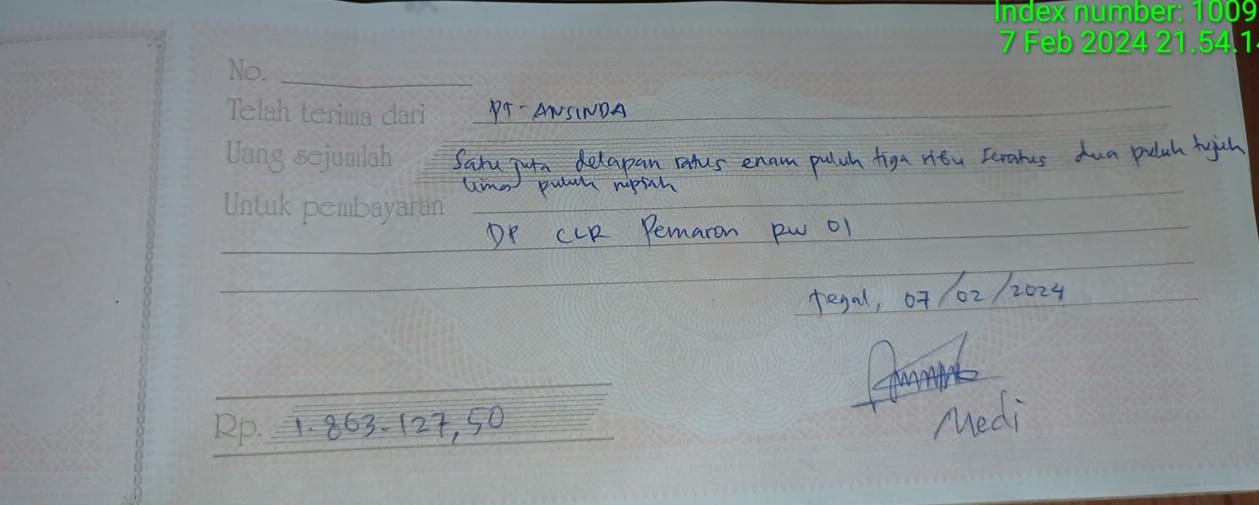 Index number: 1009
7 Feb 2024 21.54.1
No.
Telah terima dari PT-ANSINDA
Uang sejumlah Satu juta delapan ratus enam puluh tiga ribu seratus dua puluh tujuh
lima puluh rupiah
Untuk pembayaran
DP CLR Pemaron RW 01
tegal, 07/02/2024
Rp. 1.863.127,50
Medi